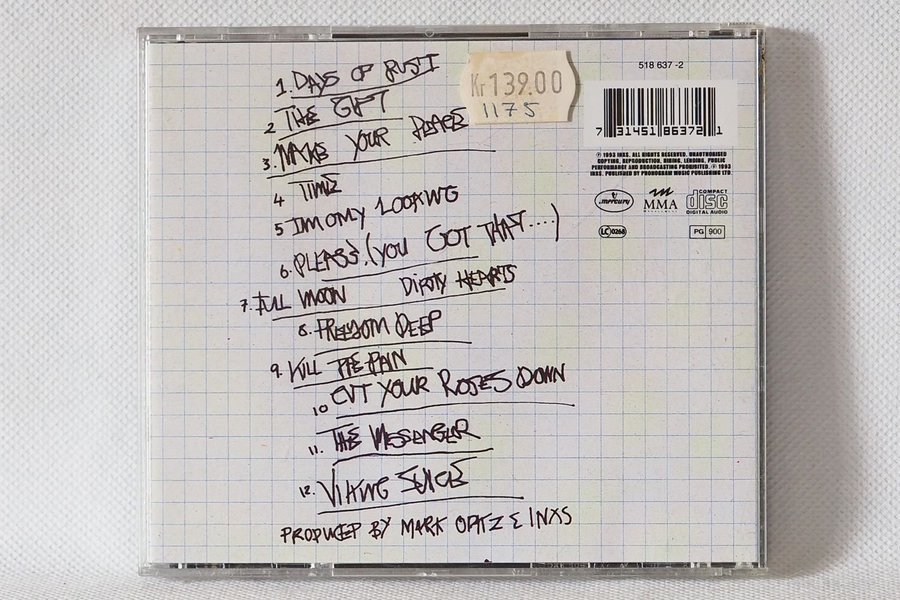 1. DAYS OF RUST
2 THE GIFT
3. MAKE YOUR PEACE
4 TIME
5 I'M ONLY LOOKING
6. PLEASE (YOU GOT THAT....)
7. FULL MOON DIRTY HEARTS
8. FREEDOM DEEP
9. KILL THE PAIN
10 CUT YOUR ROSES DOWN
11. THE MESSENGER
12. VIKING JUICE
PRODUCED BY MARK OPITZ & INXS
Kr 139.00
1175
518 637 -2
7 31451 86372 1
℗ 1993 INXS. ALL RIGHTS RESERVED. UNAUTHORISED
COPYING, REPRODUCTION, HIRING, LENDING, PUBLIC
PERFORMANCE AND BROADCASTING PROHIBITED. © 1993
INXS. PUBLISHED BY PHONOGRAM MUSIC PUBLISHING LTD
mercury
MMA
MANAGEMENT
COMPACT
disc
DIGITAL AUDIO
LC 0268
PG 900